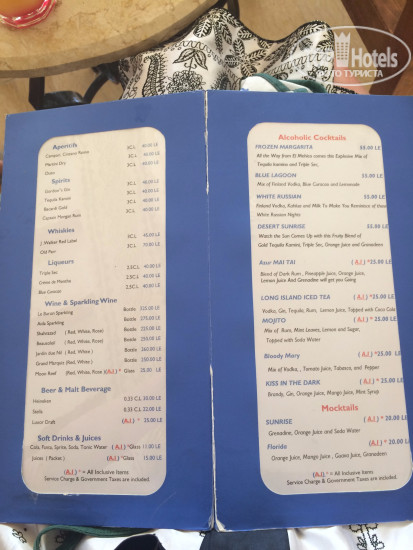 Hotels
ФОТО ТУРИСТА
Aperitifs
Campari, Cinzano Rosso 3CL 40.00 LE
Martini Dry 3CL 40.00 LE
Ouzo 3CL 60.00 LE
Spirits
Gordon's Gin 3CL 40.00 LE
Tequila 3CL 40.00 LE
Bacardi Gold 3CL 40.00 LE
Captain Morgan Rum 3CL 40.00 LE
Whiskies
J. Walker Red Label 3CL 40.00 LE
Old Parr 3CL 70.00 LE
Liqueurs
Triple Sec 2.5CL 40.00 LE
Crème de Menthe 2.5CL 40.00 LE
Blue Curacao 2.5CL 40.00 LE
Wine & Sparkling Wine
Le Baron Sparkling Bottle 325.00 LE
Aida Sparkling Bottle 275.00 LE
Shahrazad (Red, White, Rose) Bottle 225.00 LE
Beausoleil (Red, White, Rose) Bottle 250.00 LE
Jardin due Nil (Red, White) Bottle 260.00 LE
Grand Marquis (Red, White) Bottle 350.00 LE
Moon Reef (Red, White, Rose)(A,I) * Glass 20.00 LE
Beer & Malt Beverage
Heineken 0.33 CL 30.00 LE
Stella 0.33 CL 22.00 LE
Luxor Draft (A,I) * 20.00 LE
Soft Drinks & Juices
Cola, Fanta, Sprite, Soda, Tonic Water (A,I) *Glass 15.00 LE
Juices ( Packet ) (A,I) *Glass 15.00 LE
(A,I) * = All Inclusive Items
Service Charge & Government Taxes are included.
Alcoholic Cocktails
FROZEN MARGARITA 55.00 LE
All the Way from El Mexico comes this Explosive Mix of
Tequila and Triple Sec,
BLUE LAGOON 55.00 LE
Mix of Finland Vodka, Blue Curacao and Lemonade
WHITE RUSSIAN 55.00 LE
Finland Vodka, Kahlua and Milk To Make You Reminisce of those
White Russian Nights
DESERT SUNRISE 55.00 LE
Watch the Sun Comes Up with this Fruity Blend of
Gold Tequila, Triple Sec, Orange Juice and Grenadine
Azur MAI TAI (A,I) *25.00 LE
Blend of Dark Rum , Pineapple Juice, Orange Juice,
Lemon Juice And Grenadine will get you Going
LONG ISLAND ICED TEA (A,I) *25.00 LE
Vodka, Gin, Tequila, Rum, Lemon Juice, Topped with Coca Cola
MOJITO (A,I) *25.00 LE
Mix of Rum, Mint Leaves, Lemon and Sugar,
Topped with Soda Water
Bloody Mary (A,I) *25.00 LE
Mix of Vodka, , Tomato Juice, Tabasco, and Pepper
KISS IN THE DARK (A,I) *25.00 LE
Brandy, Gin, Orange Juice, Mango Juice, Mint Syrup
Mocktails
SUNRISE (A,I) *20.00 LE
Grenadine, Orange Juice and Soda Water
Florida (A,I) * 20.00 LE
Orange Juice, Mango Juice , Guava Juice, Grenadine
(A,I) * = All Inclusive Items
Service Charge & Government Taxes are included.